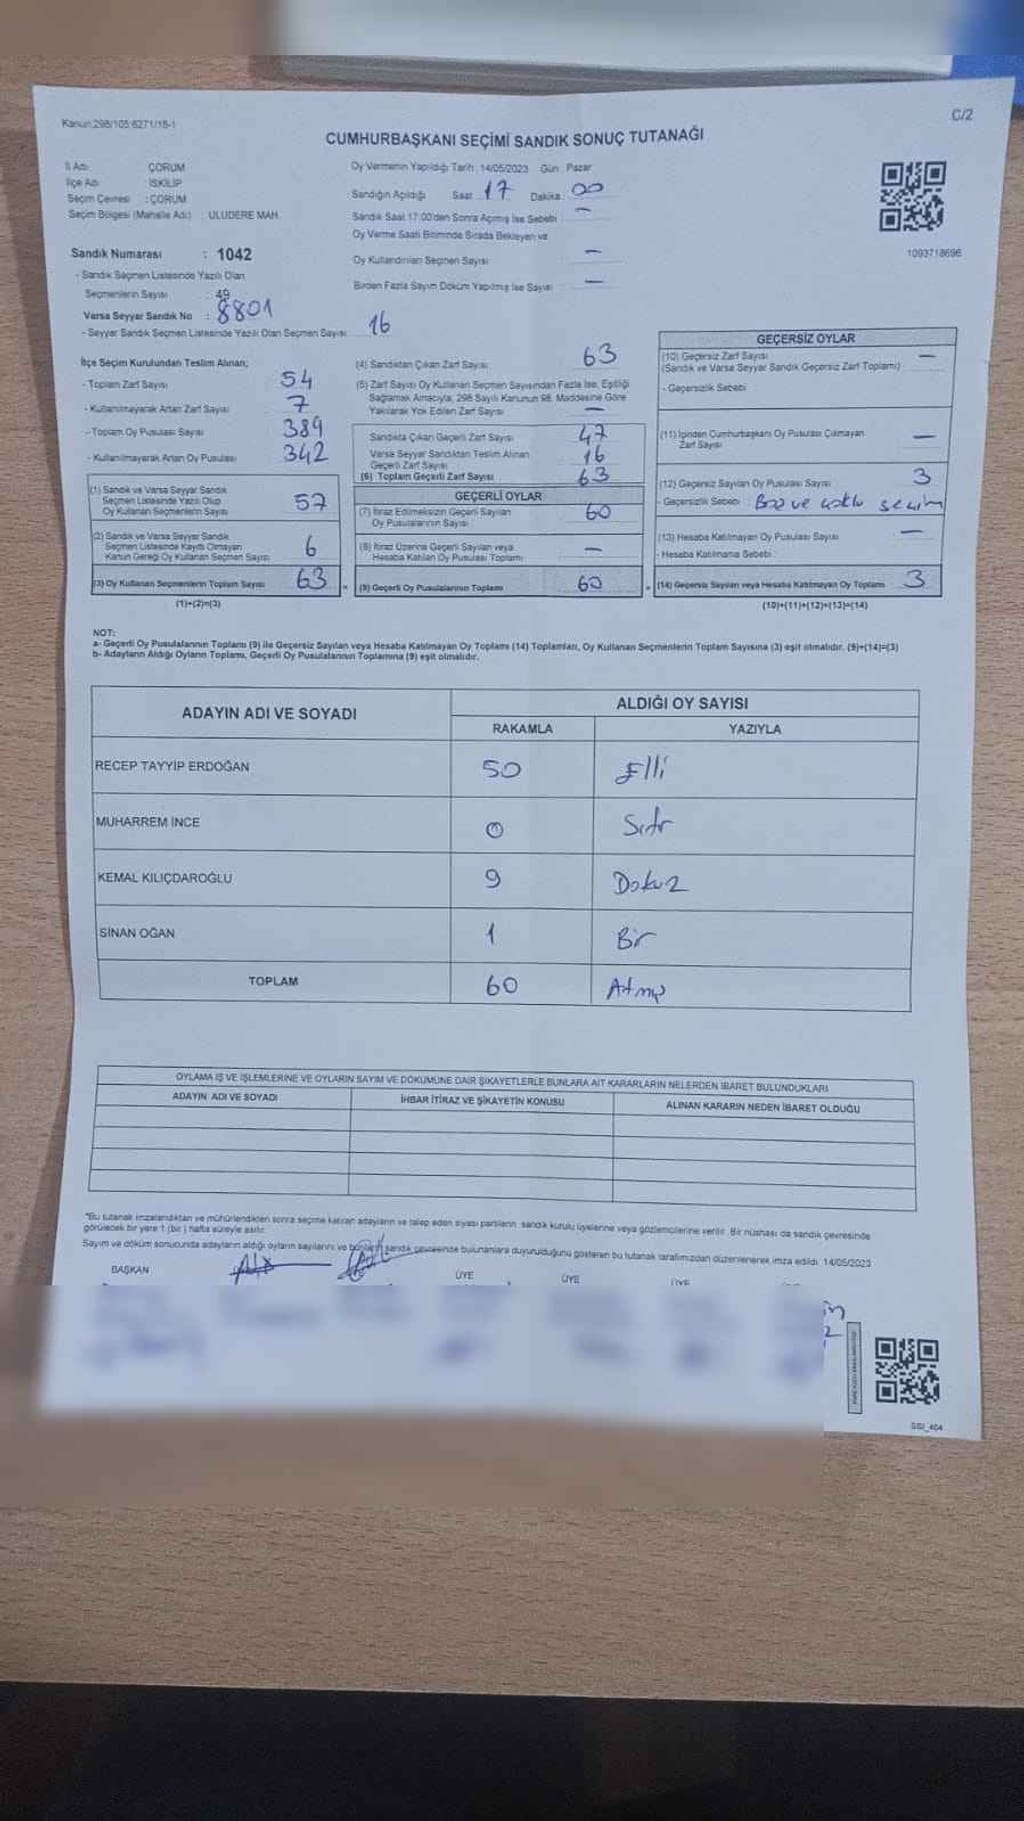 Kanun:298/105:6271/18-1
C/2
CUMHURBAŞKANI SEÇİMİ SANDIK SONUÇ TUTANAĞI
İl Adı ÇORUM
İlçe Adı İSKİLİP
Seçim Çevresi :ÇORUM
Seçim Bölgesi (Mahalle Adı) : ULUDERE MAH.
Oy Vermenin Yapıldığı Tarih :14/05/2023 Gün : Pazar
Sandığın Açıldığı Saat 17 Dakika: 00
Sandık Saat 17:00'den Sonra Açılmış İse Sebebi : —
Oy Verme Saati Bitiminde Sırada Bekleyen ve
Oy Kullandırılan Seçmen Sayısı —
Birden Fazla Sayım Döküm Yapılmış İse Sayısı —
1093718696
Sandık Numarası : 1042
- Sandık Seçmen Listesinde Yazılı Olan
Seçmenlerin Sayısı : 49
Varsa Seyyar Sandık No : 8801
- Seyyar Sandık Seçmen Listesinde Yazılı Olan Seçmen Sayısı: 16
İlçe Seçim Kurulundan Teslim Alınan;
- Toplam Zarf Sayısı 54
- Kullanılmayarak Artan Zarf Sayısı 7
- Toplam Oy Pusulası Sayısı 389
- Kullanılmayarak Artan Oy Pusulası 342
(1) Sandık ve Varsa Seyyar Sandık
Seçmen Listesinde Yazılı Olup
Oy Kullanan Seçmenlerin Sayısı 57
(2) Sandık ve Varsa Seyyar Sandık
Seçmen Listesinde Kayıtlı Olmayan
Kanun Gereği Oy Kullanan Seçmen Sayısı 6
(3) Oy Kullanan Seçmenlerin Toplam Sayısı 63
(1)+(2)=(3)
(4) Sandıktan Çıkan Zarf Sayısı 63
(5) Zarf Sayısı Oy Kullanan Seçmen Sayısından Fazla İse, Eşitliği
Sağlamak Amacıyla, 298 Sayılı Kanunun 98. Maddesine Göre
Yakılarak Yok Edilen Zarf Sayısı —
Sandıkta Çıkan Geçerli Zarf Sayısı 47
Varsa Seyyar Sandıktan Teslim Alınan
Geçerli Zarf Sayısı 16
(6) Toplam Geçerli Zarf Sayısı 63
GEÇERLİ OYLAR
(7) İtiraz Edilmeksizin Geçerli Sayılan
Oy Pusulalarının Sayısı 60
(8) İtiraz Üzerine Geçerli Sayılan veya
Hesaba Katılan Oy Pusulası Toplamı —
= (9) Geçerli Oy Pusulalarının Toplamı 60
GEÇERSİZ OYLAR
(10) Geçersiz Zarf Sayısı —
(Sandık ve Varsa Seyyar Sandık Geçersiz Zarf Toplamı)
- Geçersizlik Sebebi
(11) İçinden Cumhurbaşkanı Oy Pusulası Çıkmayan
Zarf Sayısı —
(12) Geçersiz Sayılan Oy Pusulası Sayısı 3
- Geçersizlik Sebebi Boş ve çoklu seçim
(13) Hesaba Katılmayan Oy Pusulası Sayısı —
- Hesaba Katılmama Sebebi
+ (14) Geçersiz Sayılan veya Hesaba Katılmayan Oy Toplamı 3
(10)+(11)+(12)+(13)=(14)
NOT:
a- Geçerli Oy Pusulalarının Toplamı (9) ile Geçersiz Sayılan veya Hesaba Katılmayan Oy Toplamı (14) Toplamları, Oy Kullanan Seçmenlerin Toplam Sayısına (3) eşit olmalıdır. (9)+(14)=(3)
b- Adayların Aldığı Oyların Toplamı, Geçerli Oy Pusulalarının Toplamına (9) eşit olmalıdır.
ADAYIN ADI VE SOYADI ALDIĞI OY SAYISI
RAKAMLA YAZIYLA
RECEP TAYYİP ERDOĞAN 50 Elli
MUHARREM İNCE 0 Sıfır
KEMAL KILIÇDAROĞLU 9 Dokuz
SİNAN OĞAN 1 Bir
TOPLAM 60 Atmış
OYLAMA İŞ VE İŞLEMLERİNE VE OYLARIN SAYIM VE DÖKÜMÜNE DAİR ŞİKAYETLERLE BUNLARA AİT KARARLARIN NELERDEN İBARET BULUNDUKLARI
ADAYIN ADI VE SOYADI İHBAR İTİRAZ VE ŞİKAYETİN KONUSU ALINAN KARARIN NEDEN İBARET OLDUĞU
*Bu tutanak imzalandıktan ve mühürlendikten sonra seçime katılan adayların ve talep eden siyasi partilerin sandık kurulu üyelerine veya gözlemcilerine verilir. Bir nüshası da sandık çevresinde
görülecek bir yere 1 (bir) hafta süreyle asılır.
Sayım ve döküm sonucunda adayların aldığı oyların sayılarını ve bunların sandık çevresinde bulunanlara duyurulduğunu gösteren bu tutanak tarafımızdan düzenlenerek imza edildi. 14/05/2023
BAŞKAN ÜYE ÜYE ÜYE